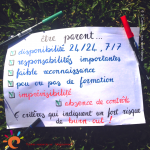 être parent...
disponibilité 24/24, 7/7
responsabilités importantes
faible reconnaissance
peu ou pas de formation
imprévisibilité
absence de contrôle
6 critères qui indiquent un fort risque
de burn out !